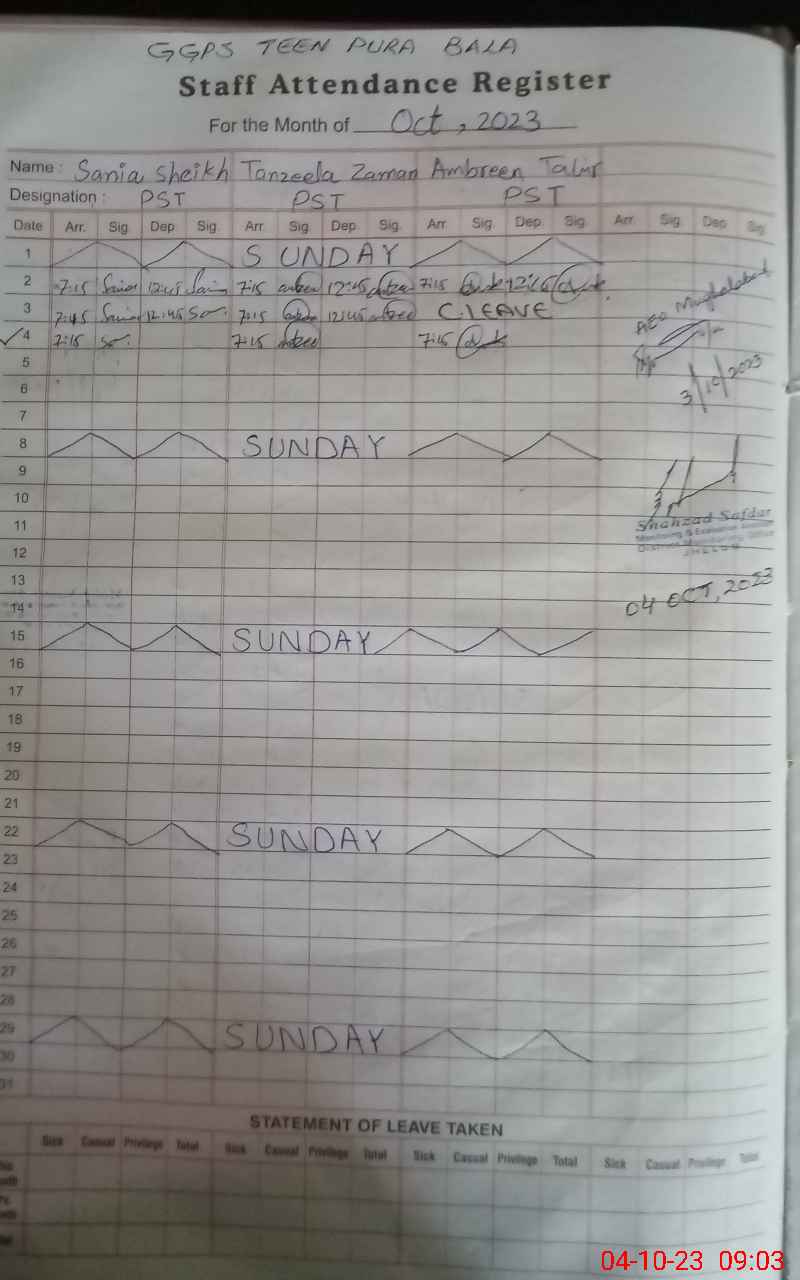 GGPS TEEN PURA BALA
Staff Attendance Register
For the Month of Oct, 2023
Name: Sania Sheikh Tanzeela Zaman Ambreen Tahir
Designation: PST PST PST
Date Arr. Sig. Dep. Sig. Arr. Sig. Dep. Sig. Arr. Sig. Dep. Sig. Arr. Sig. Dep. Sig.
1 SUNDAY
2 7:15 Sania 12:45 Sania 7:15 12:45 7:15 12:45
3 7:45 Sania 12:45 7:15 12:45 C.LEAVE
4 7:15 7:15 7:15
AEO
5
6
3/10/2023
7
8 SUNDAY
9
10
11
Shahzad Safdar
12
13
04 OCT, 2023
14
15 SUNDAY
16
17
18
19
20
21
22 SUNDAY
23
24
25
26
27
28
29 SUNDAY
30
31
STATEMENT OF LEAVE TAKEN
Sick Casual Privilege Total Sick Casual Privilege Total Sick Casual Privilege Total Sick Casual Privilege Total
04-10-23 09:03